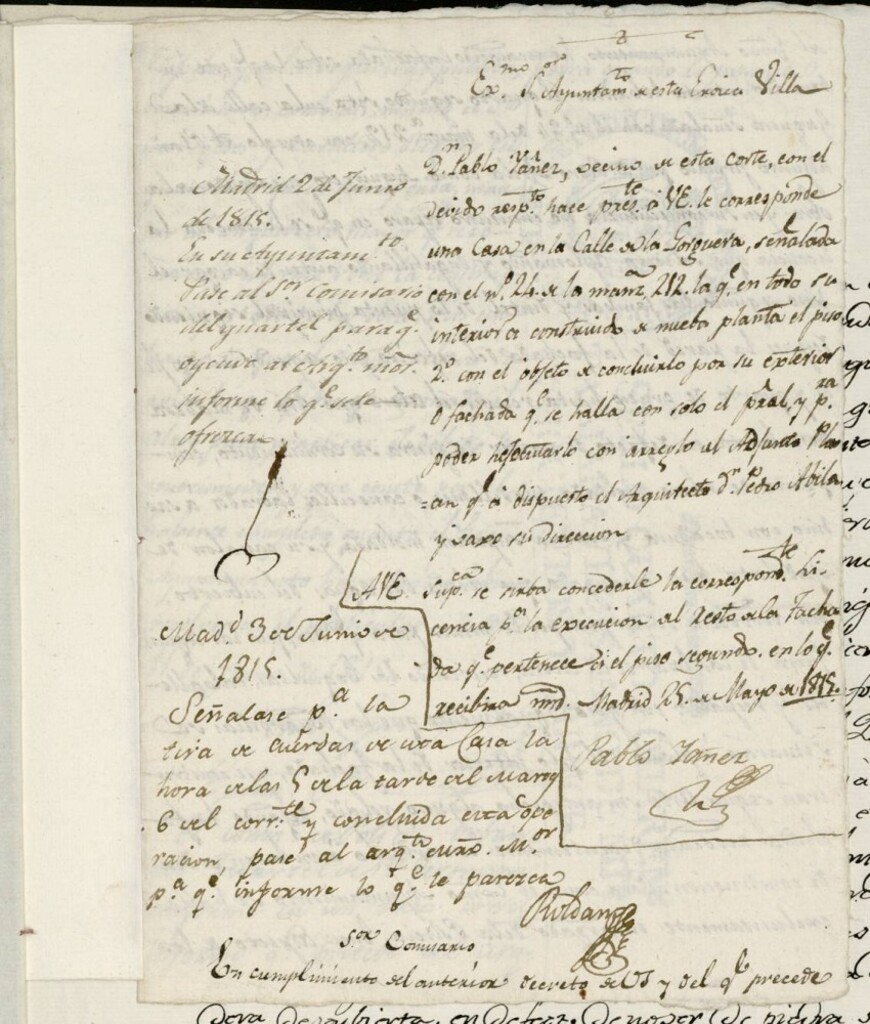 Exmo. Sor. Ayuntamto. de esta Eroica Villa
Dn. Pablo Yañez, vecino de esta corte, con el
devido respto. hace preste. á VE. le corresponde
una Casa en la Calle de la Gorguera, señalada
con el no. 24. de la manza. 212. la qe. en todo su
interior a construido de nueba planta el piso
2o. con el objeto de concluirlo por su exterior
o fachada qe. se halla con solo el pral, y pra.
poder hejecutarlo con arreglo al Adjunto Pla
=an qe. á dispuesto el Arquitecto dn. Pedro Abila
y vaxo su direccion
A VE. Supca. se sirba concederle la correspondte. Li-
cencia pa. la execucion del resto de la Facha
da qe. pertenece á el piso segundo. en lo qe.
recibira md. Madrid 25. de Mayo de 1815.
Pablo Yañez
Madrid 2 de Junio
de 1815.
En su Ayuntamto.
Pase al Sor. Comisario
del quartel para qe.
oyendo al arqto. mor.
informe lo qe. se le
ofrezca
Madd. 3 de Junio de
1815.
Señalase pa. la
tira de cuerdas de esta Casa la
hora de las 5 de la tarde del Martes
6 del corrte. y concluida esta ope
racion, pase al arqto. Mor.
pa. qe. informe lo qe. le parezca
Roldan
Sor. Comisario
En cumplimiento del anterior decreto de VS y del qe. precede